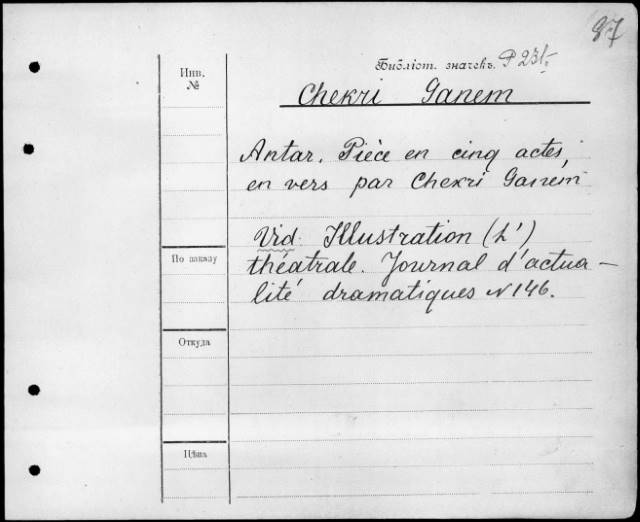 87
Библіот. значекъ. P 231
Инв.
№
Chekri Ganem
Antar. Pièce en cinq actes,
en vers par Chekri Ganem
Vid. Illustration (L')
По заказу
théatrale. Journal d'actua-
lité dramatiques N 146.
Откуда
Цѣна